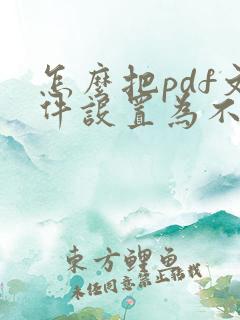 怎麽把pdf文
件設置為不
東方鯉魚
未任同意禁止轉載